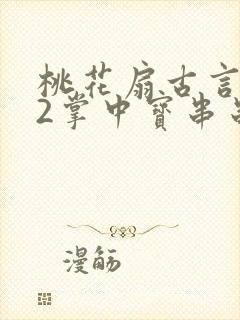 桃花扇古言
2掌中寳串
漫觞